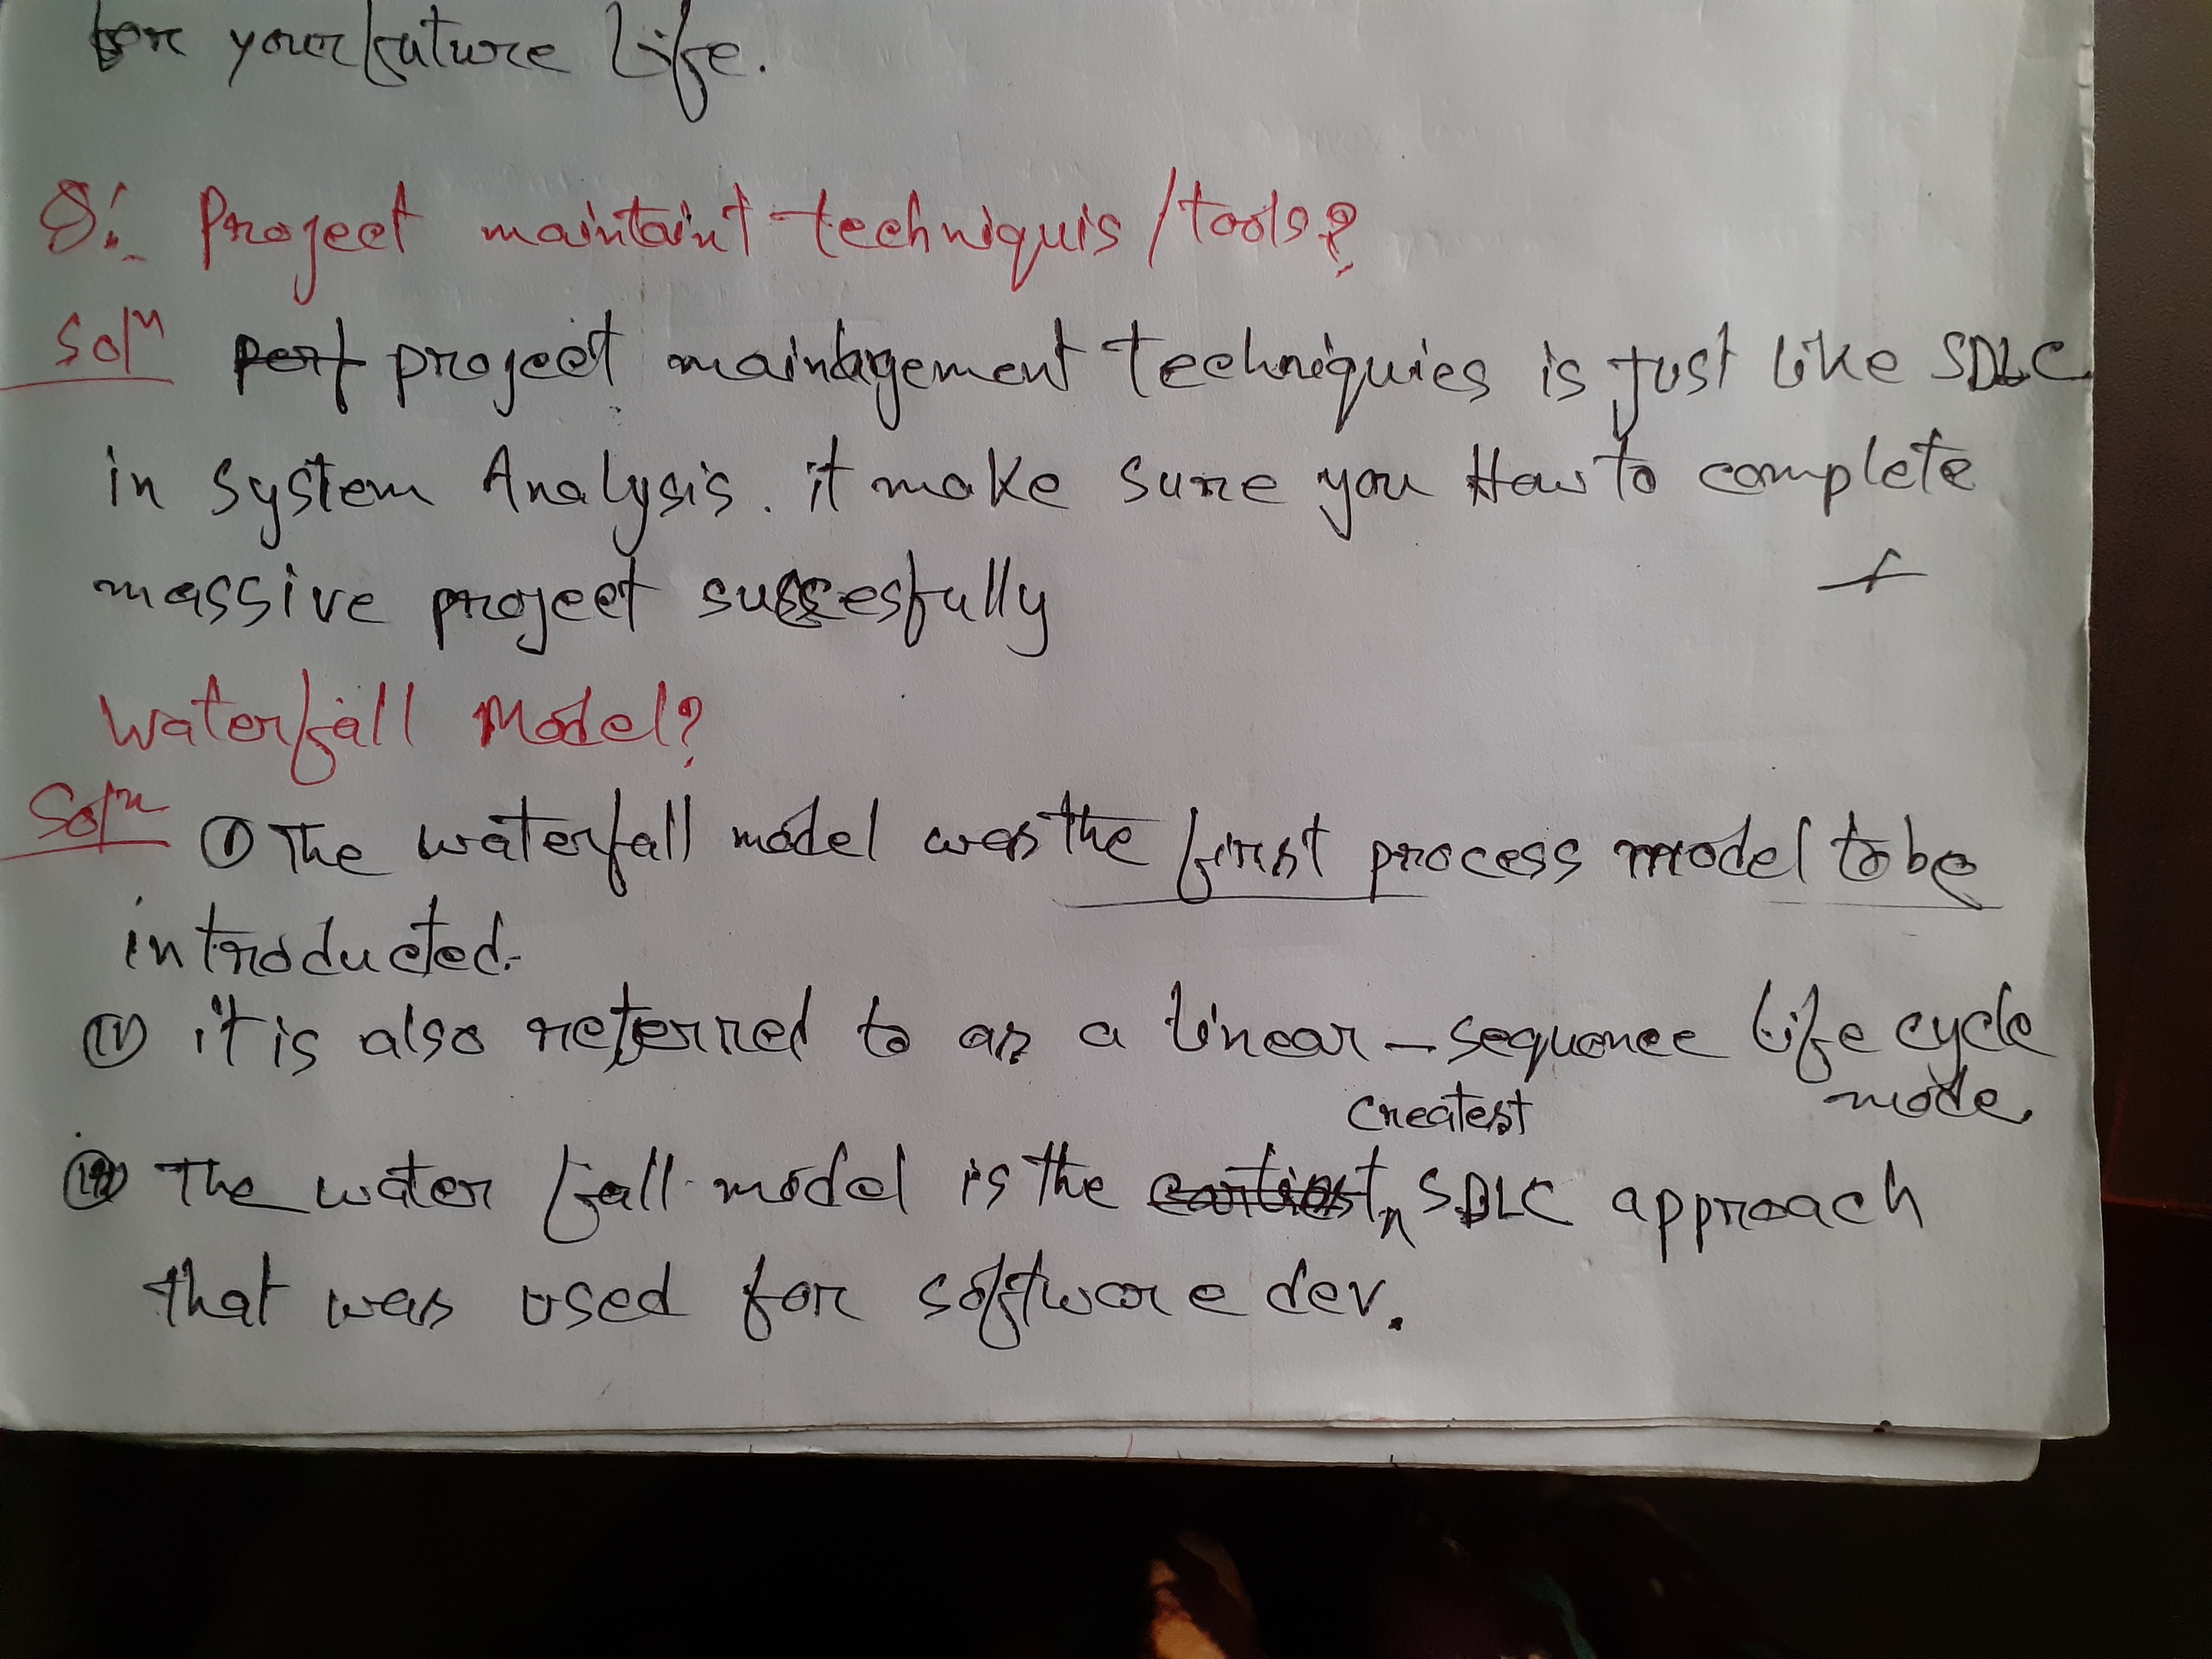 for your future life.
8:- Project maintaint-techniquis/tools?
Soln project maindagement-techniquies is just like SDLC
in system Analysis. it make sure you How to complete
massive project succesfully
Waterfall Model?
Soln ① The waterfall model was the first process model to be
introducted.
② it is also referred to as a linear-sequence life cycle
mode.
③ The water fall-model is the createst SDLC approach
that was used for software dev.